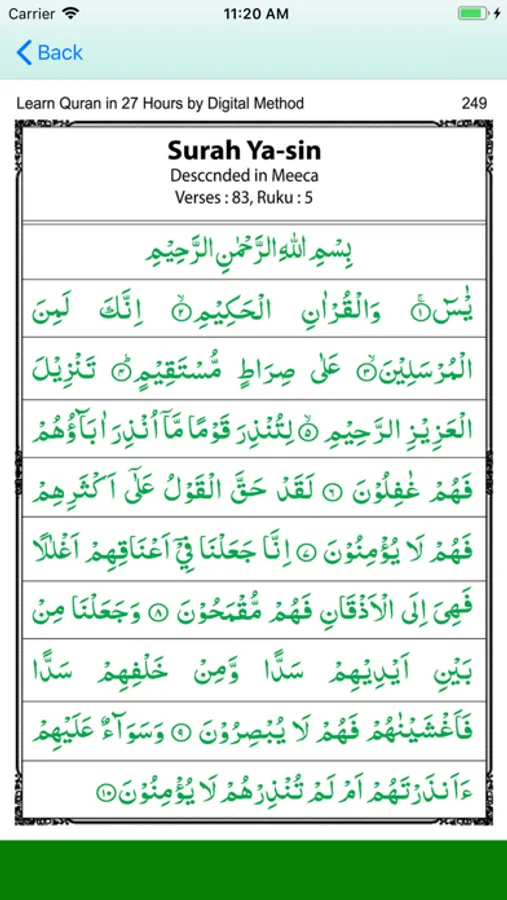 Carrier 11:20 AM
Back
Learn Quran in 27 Hours by Digital Method 249
Surah Ya-sin
Desccnded in Meeca
Verses : 83, Ruku : 5
بِسْمِ اللهِ الرَّحْمٰنِ الرَّحِيْمِ
يٰسٓ ۚ﴿۱﴾ وَالْقُرْاٰنِ الْحَكِيْمِ ۙ﴿۲﴾ اِنَّكَ لَمِنَ
الْمُرْسَلِيْنَ ۙ﴿۳﴾ عَلٰى صِرَاطٍ مُّسْتَقِيْمٍ ؕ﴿۴﴾ تَنْزِيْلَ
الْعَزِيْزِ الرَّحِيْمِ ۙ﴿۵﴾ لِتُنْذِرَ قَوْمًا مَّاۤ اُنْذِرَ اٰبَآؤُهُمْ
فَهُمْ غٰفِلُوْنَ ﴿۶﴾ لَقَدْ حَقَّ الْقَوْلُ عَلٰٓى اَكْثَرِهِمْ
فَهُمْ لَا يُؤْمِنُوْنَ ﴿۷﴾ اِنَّا جَعَلْنَا فِيْۤ اَعْنَاقِهِمْ اَغْلٰلًا
فَهِىَ اِلَى الْاَذْقَانِ فَهُمْ مُّقْمَحُوْنَ ﴿۸﴾ وَجَعَلْنَا مِنْ
بَيْنِ اَيْدِيْهِمْ سَدًّا وَّمِنْ خَلْفِهِمْ سَدًّا
فَاَغْشَيْنٰهُمْ فَهُمْ لَا يُبْصِرُوْنَ ﴿۹﴾ وَسَوَآءٌ عَلَيْهِمْ
ءَاَنذَرْتَهُمْ اَمْ لَمْ تُنْذِرْهُمْ لَا يُؤْمِنُوْنَ ﴿۱۰﴾